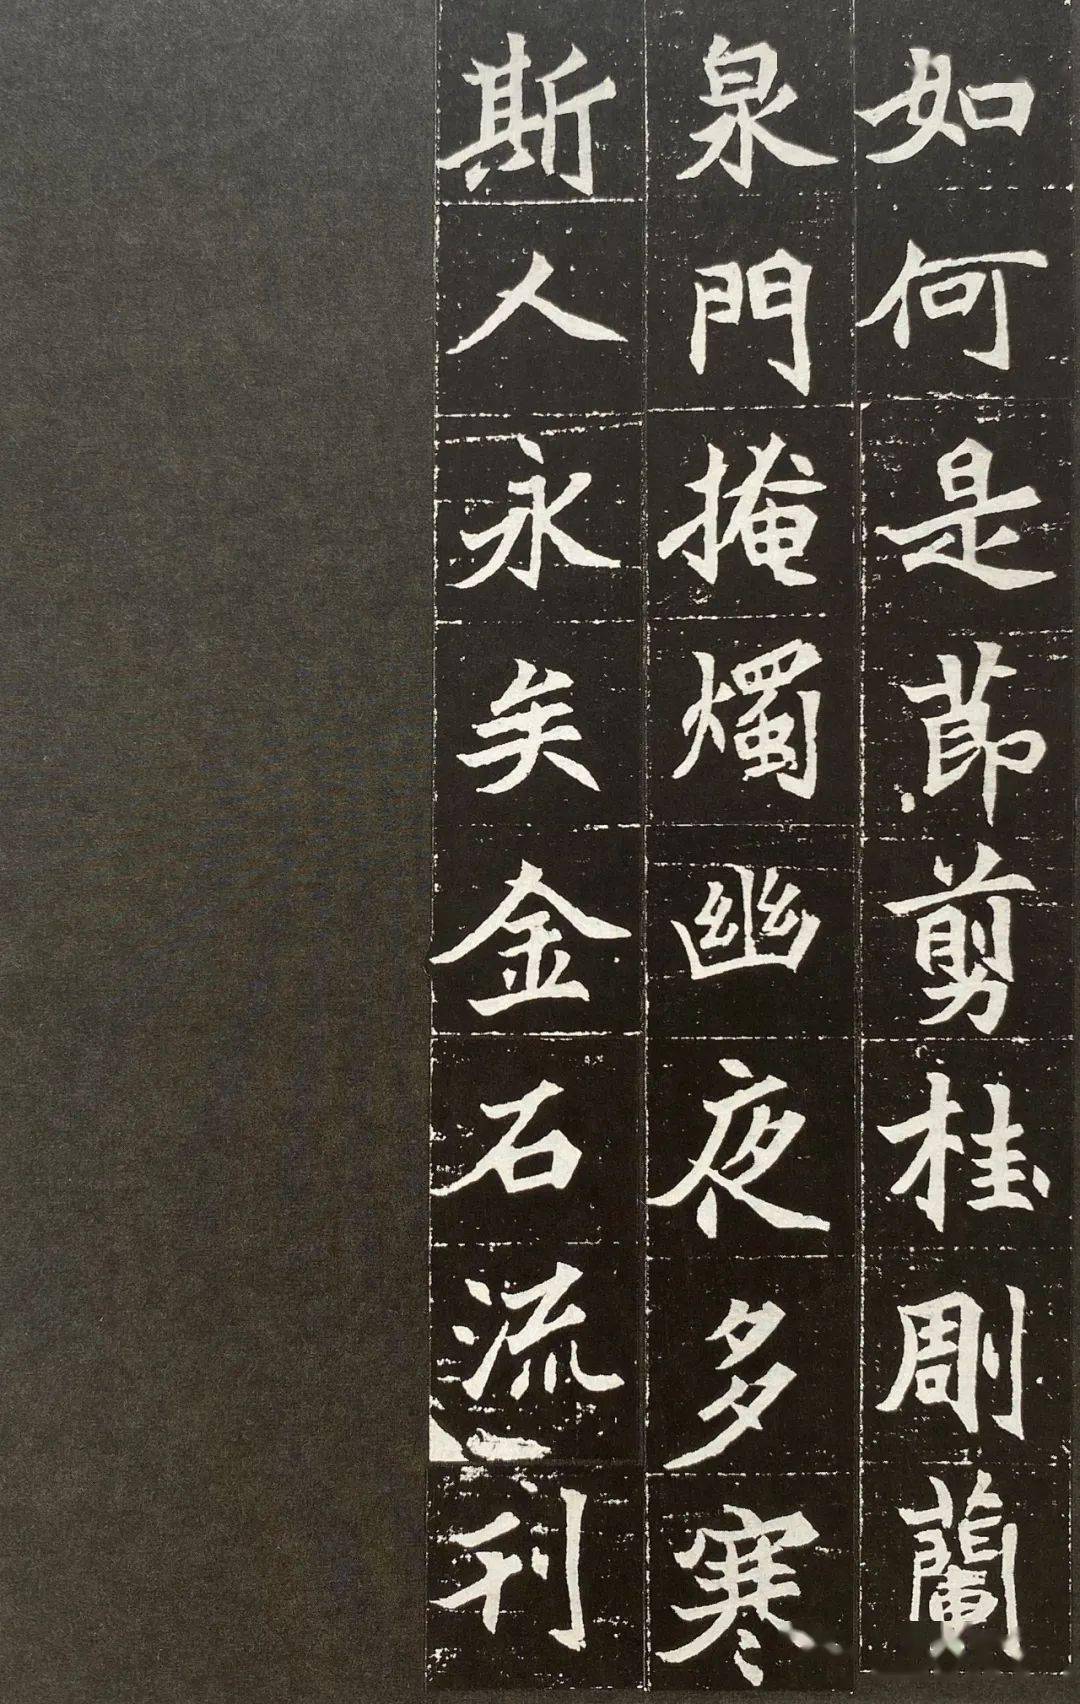 如何是莭剪桂剮蘭
泉門掩燭幽夜多寒
斯人永矣金石流刊